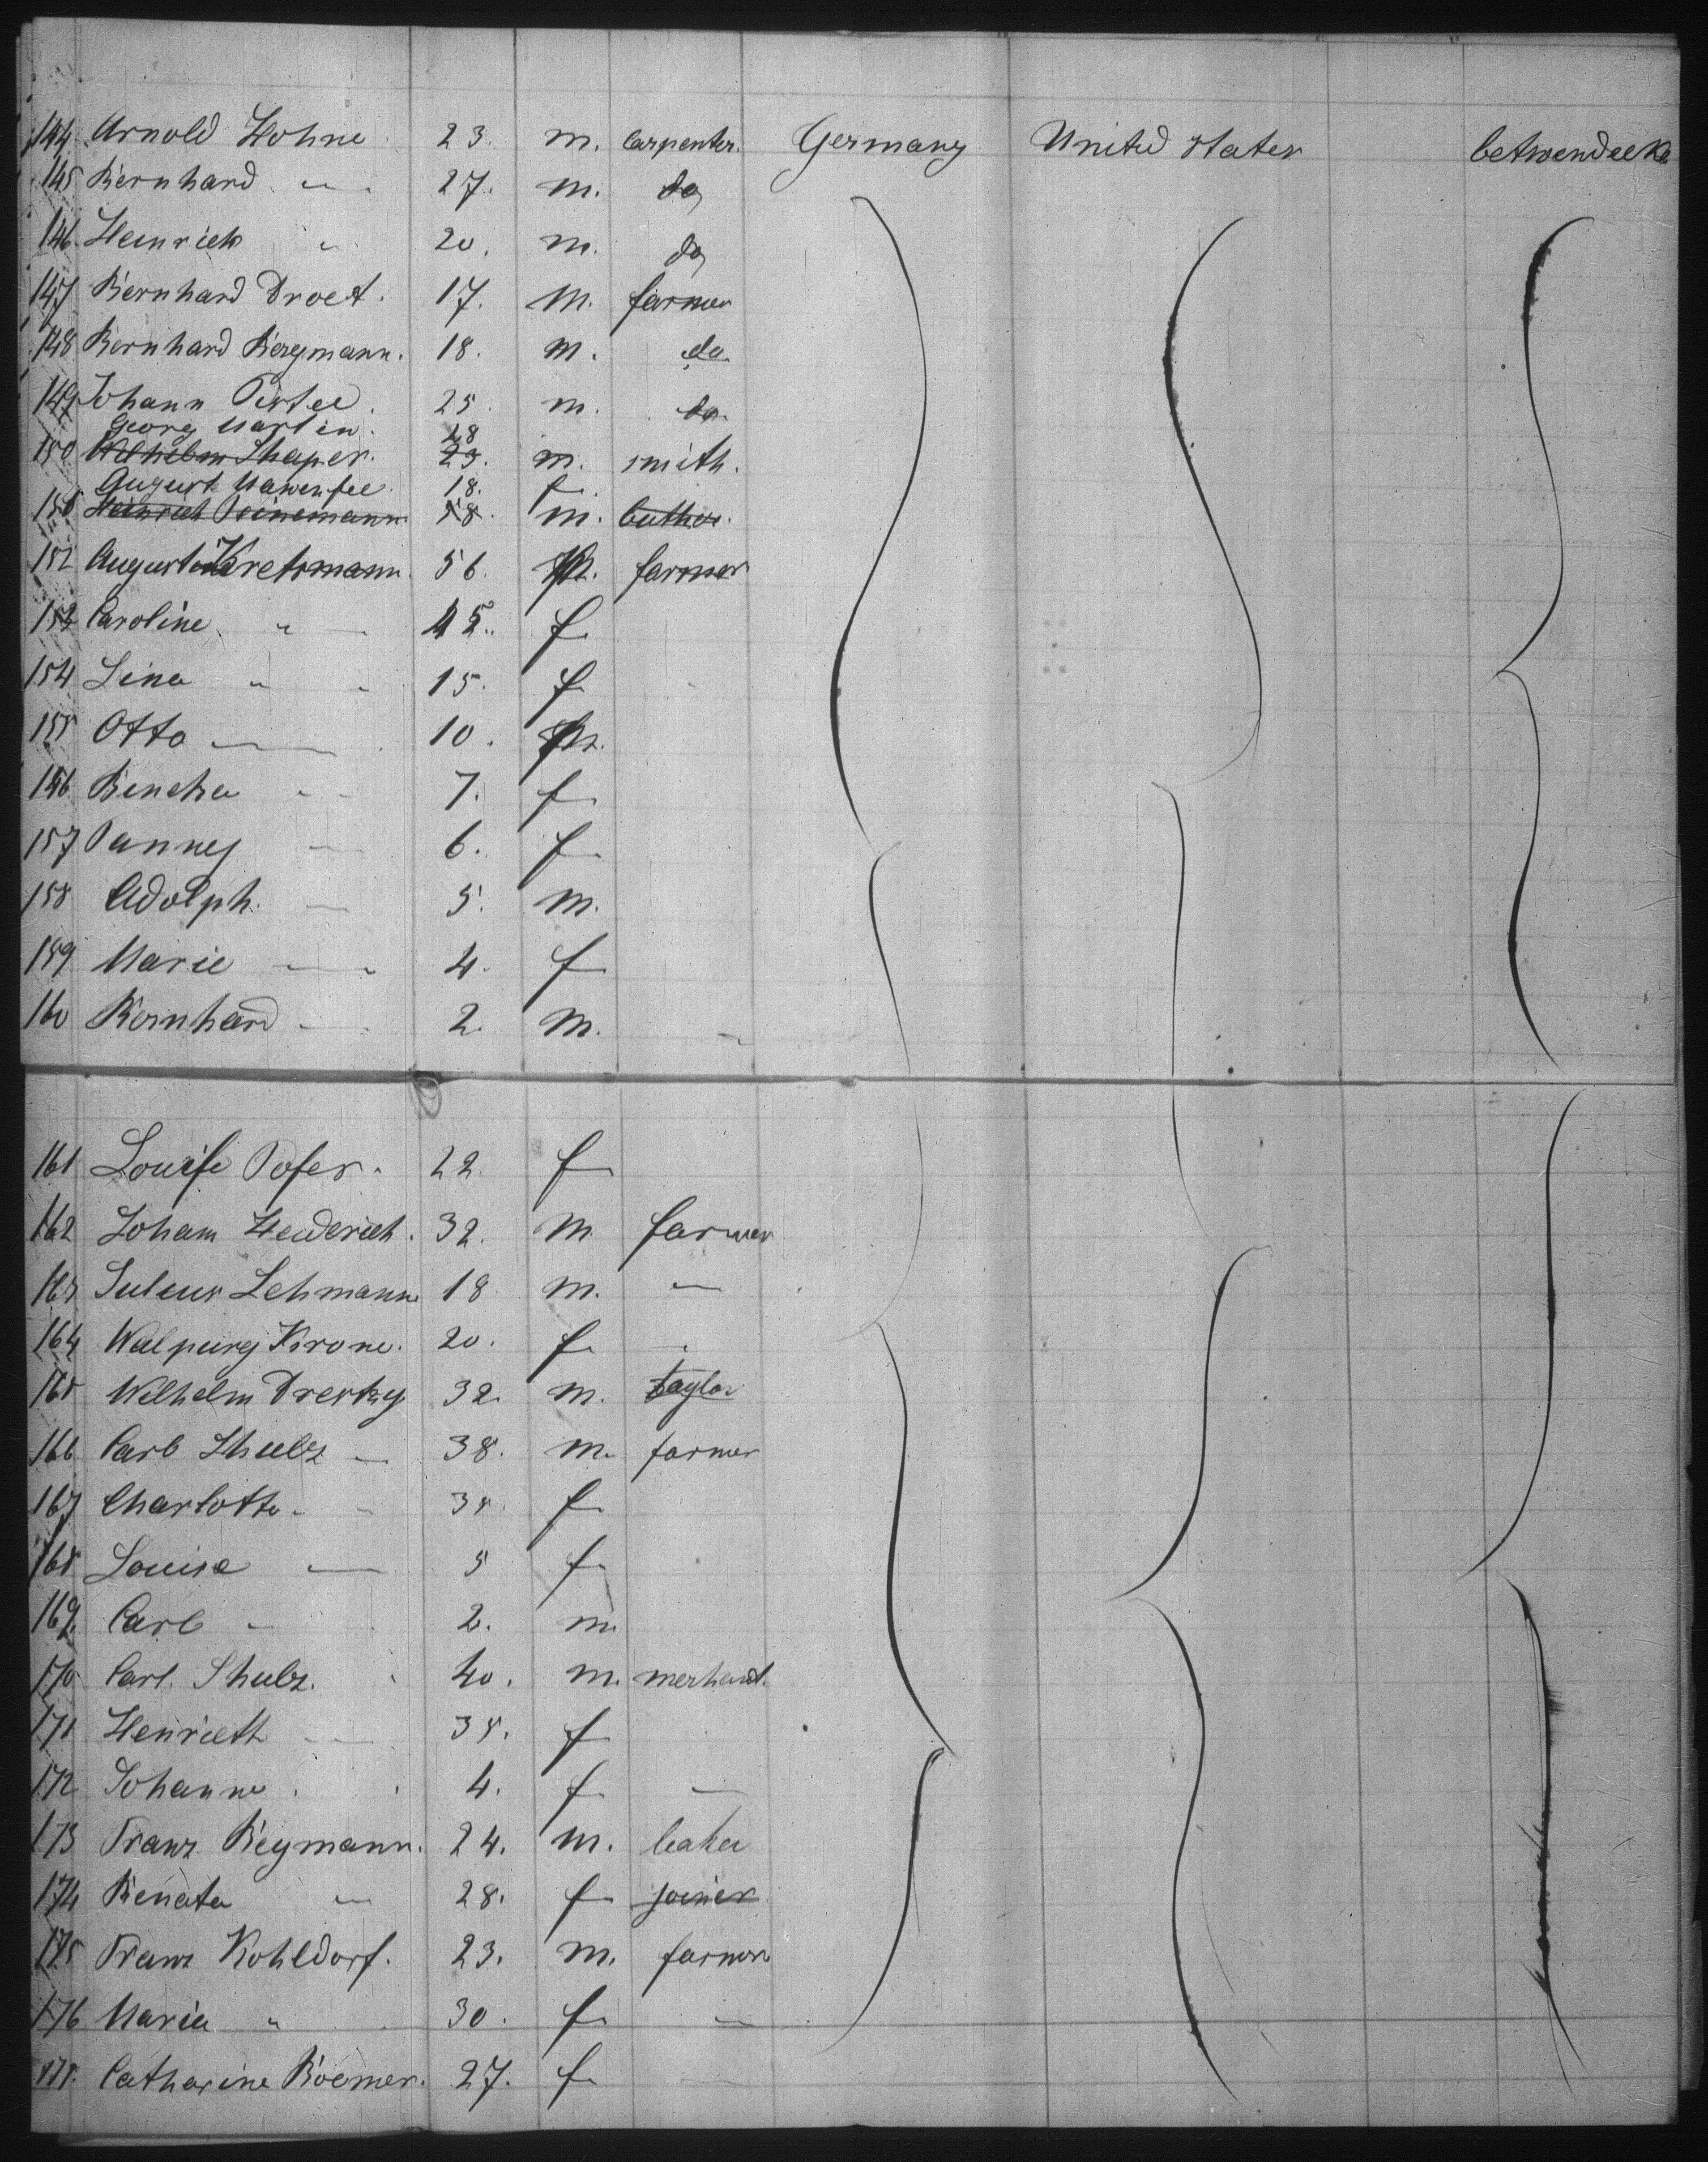 144 Arnold Hohne 23. m. Carpenter. Germany United States betwendecks
145 Bernhard " 27. m. do
146 Heinrich " 20. m. do
147 Bernhard Droet. 17. m. farmer
148 Bernhard Bergmann. 18. m. do
149 Johann 25. m. do.
Georg Martin. 28
150 Wilhelm Shaper. 23. m. smith.
August 18. f.
Heinrich Deinemann 58. m. buther.
152 Kretsmann. 56. farmer
153 Caroline " 45. f
154 Lina " 15. f
155 Otto 10.
156 7. f
157 Fanney 6. f
158 Adolph. 5. m.
159 Marie 4. f
160 Bernhard 2. m.
161 Louise 22. f
162 Johann 32. m farmer
163 Julius Lehmann 18 m. —
164 Walpurg Krone. 20. f.
165 Wilhelm 32. m. taylor
166 Carl Shulz 38. m. farmer
167 Charlotte. 35. f
168 Louise 5 f
169. Carl 2. m.
170 Carl. Shulz. 40. m. merhant.
171 Henrieth 35. f
172 Johanne. 4. f —
173 Franz Beymann. 24. m. baker
174 Renata " 28. f joiner
175 Franz Kohldorf. 23. m. farmer
176 Maria " 30. f
Catharine Roemer. 27. f